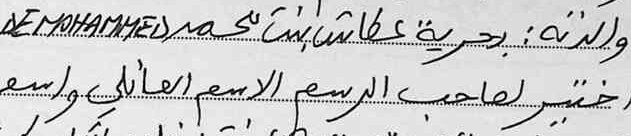 والدته : بحرية عطاش بنت محمد DE MOHAMMED
اختير لصاحب الرسم الاسم العائلي واسم